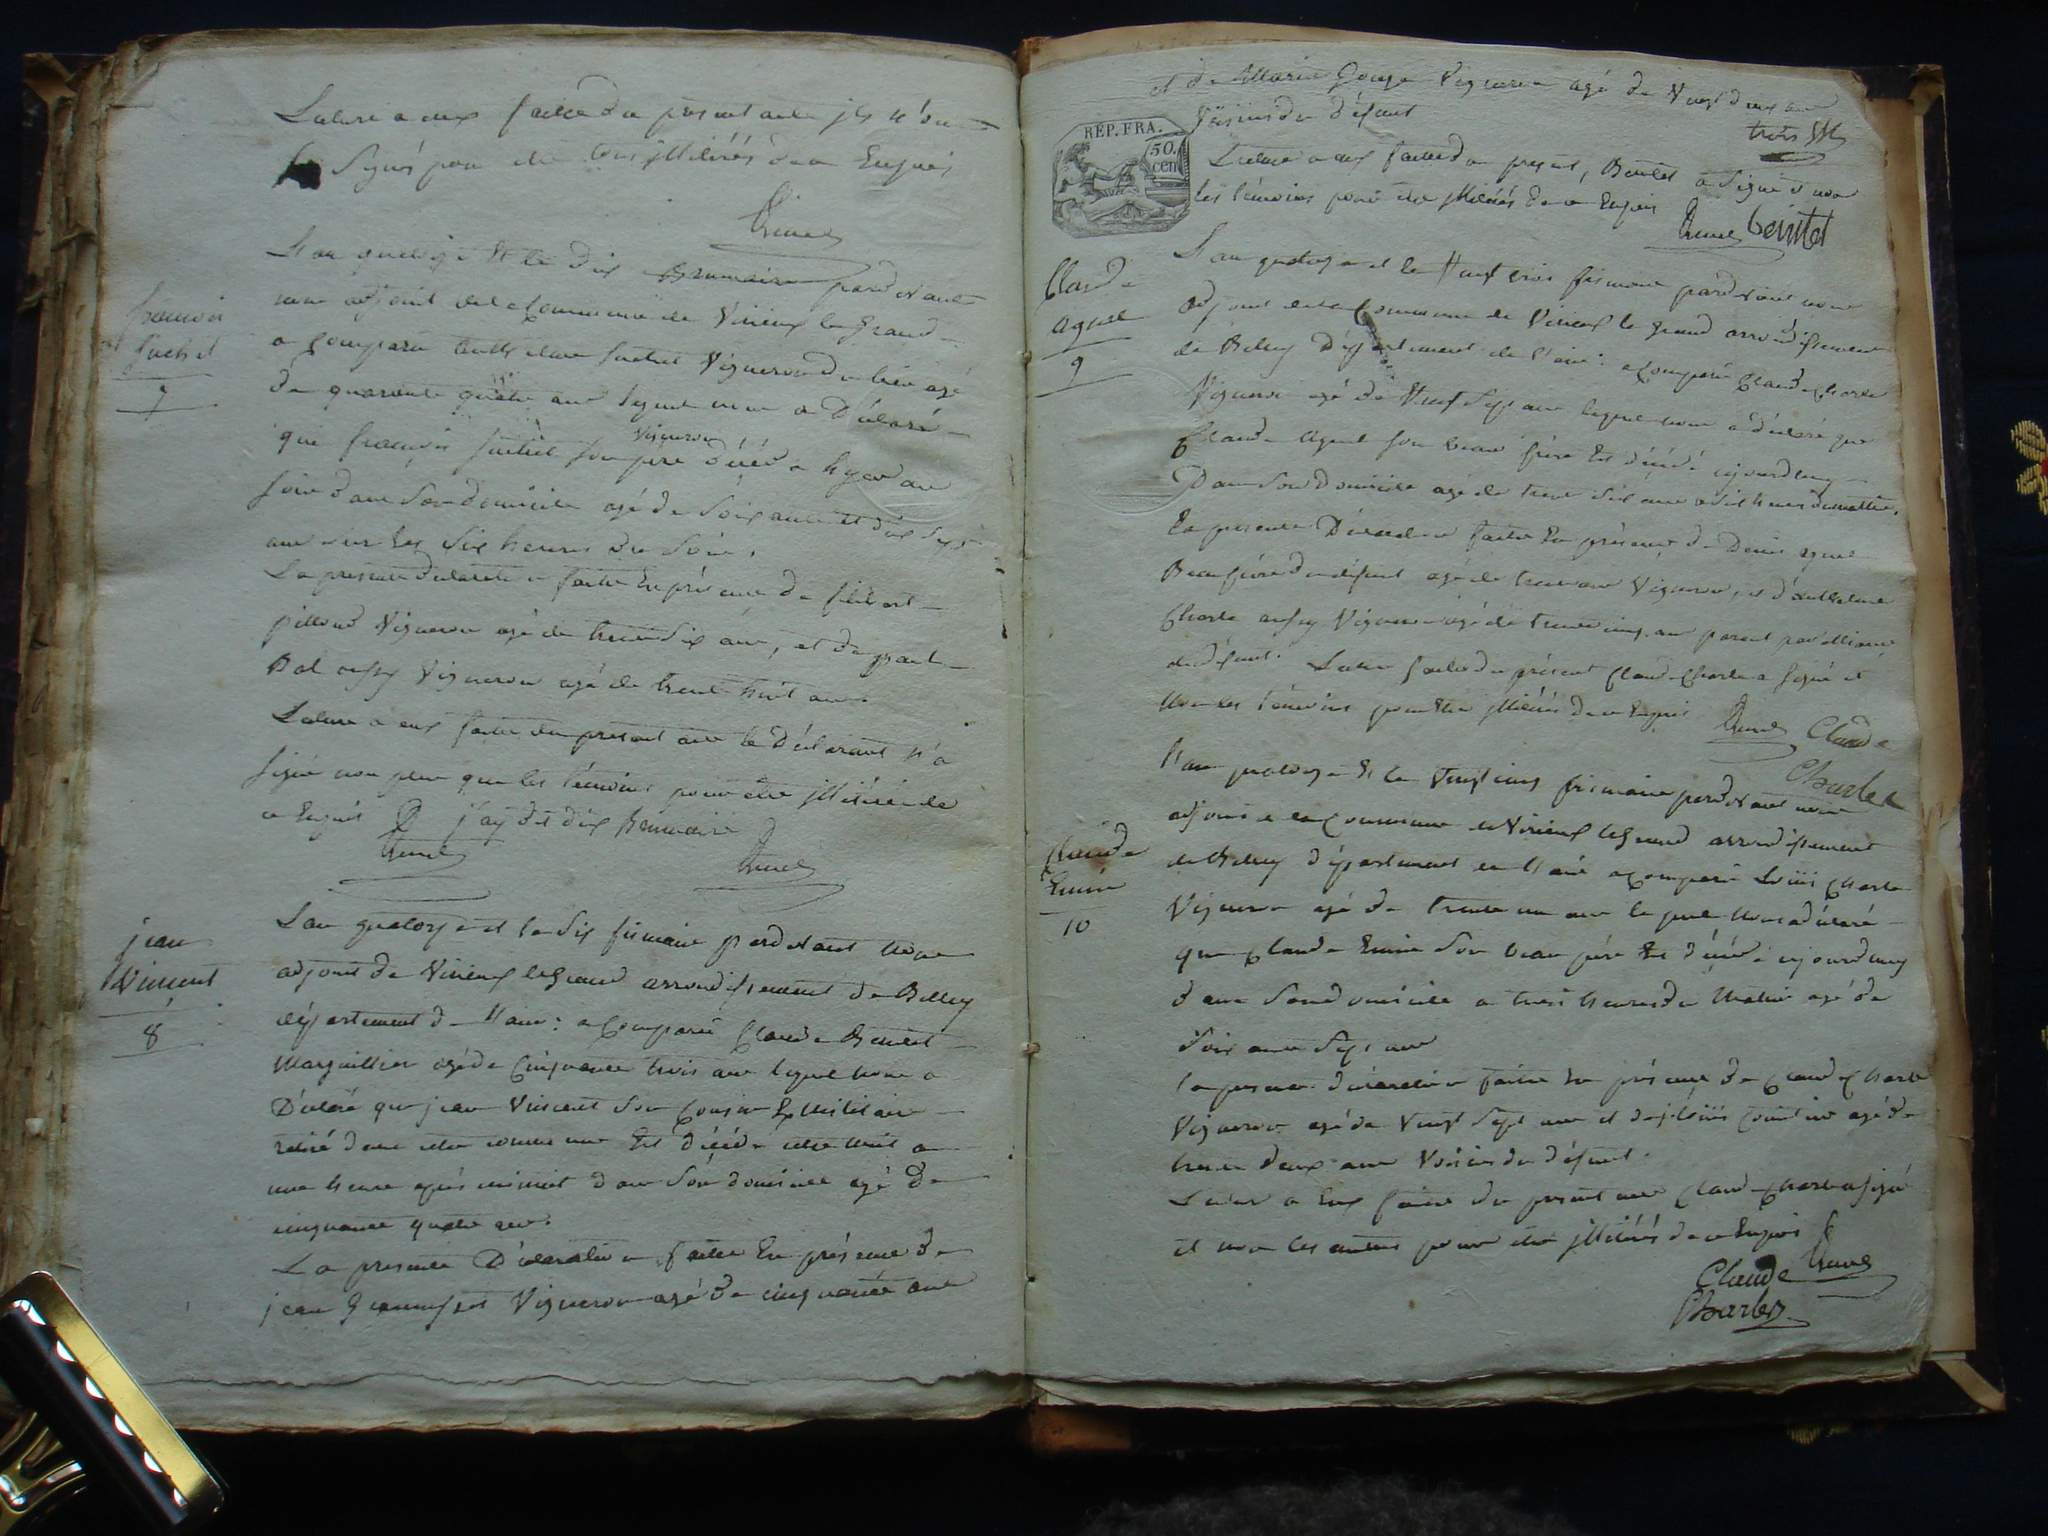 Lecture a eux faite du présent acte ils n'ont
signés pour etre tous illitérés de ce Enquis
françois
suchet
7
L'an quatorze et le dix Brumaire pardevant
nous adjoint de la Commune de Virieux le grand
a Comparu anthelme suchet Vigneron du lieu agé
de quarante quatre ans lequel nous a Déclaré
que françois suchet Vigneron son père décédé hyer au
soir dans son domicile agé de soixante et dix sept
ans sur les six heures du soir.
La presente declaration faite En présence de
pilloud Vigneron agé de trente six ans, et de
Bal aussy Vigneron agé de trente huit ans.
Lecture a eux faite du present acte le Déclarant n'a
signé non plus que les témoins pour etre illitérés de
ce Enquis j'ay dit dix Brumaire
jean
Vincent
8
L'an quatorze et le dix frimaire pardevant Nous
adjoint de Virieux le Grand arrondissement de Belley
département de l'ain : a Comparu Claude Beintet
Marguillier agé de Cinquante trois ans lequel nous a
Déclaré que jean Vincent son Cousin Ex Militaire
retiré dans cette commune Est décédé cette nuit a
une heure après minuit dans son domicile agé de
cinquante quatre ans.
La presente Déclaration faite En présence de
jean Vigneron agé de cinquante ans
et de Marin Vigneron agé de Vingt deux ans
Voisins du défunt
trois
REP. FRA.
50.
cen
Lecture a eux faite du present, Beintet a Signé et non
les témoins pour etre illitérés de ce Enquis
beintet
Claude
aguet
9
L'an quatorze et le Vingt trois frimaire pardevant nous
adjoint de la Commune de Virieux le grand arrondissement
de Belley Département de l'ain : a Comparu Claude Charle
Vigneron agé de Vingt Sept ans lequel nous a déclaré que
Claude aguet son beau frère Est décédé aujourdhuy
Dans son Domicile agé de trente six ans a six heures du mattin.
La presente Déclaration faite En présence de Denis aguet
Beau frère du défunt agé de trente ans Vigneron, et d'anthelme
Charle aussy Vigneron agé de trente cinq ans parent par alliance
du défunt. Lecture faite du présent Claude Charle a Signé et
Non les témoins pour Etre illitérés de ce Enquis
Claude
Charle
Claude
Emin
10
L'an quatorze Et le Vingt cinq frimaire pardevant nous
adjoint de la Commune de Virieux le Grand arrondissement
de Belley département de l'ain a Comparu Louis Charle
Vigneron agé de trente un ans lequel Nous a déclaré
que Claude Emin Son beau père Est décédé aujourdhuy
dans Son domicile a trois heures du Matin agé de
soixante Sept ans
la presente déclaration faitte En présence de Claude Charle
Vigneron agé de Vingt Sept ans et de Louis agé de
trente Deux ans Voisins du défunt.
Lecture a Eux faite du present acte Claude Charle a signé
et non les autres pour etre illitérés de ce Enquis
Claude
Charle